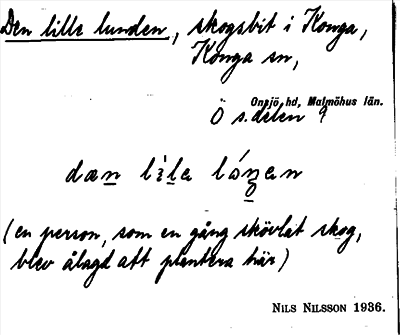 Den lille lunden, skogsbit i Konga,
Konga sn,
Onsjö hd, Malmöhus län.
Ö s. delen 9
dæn lìla
(en person, som en gång skövlat skog,
blev ålagd att plantera här)
NILS NILSSON 1936.